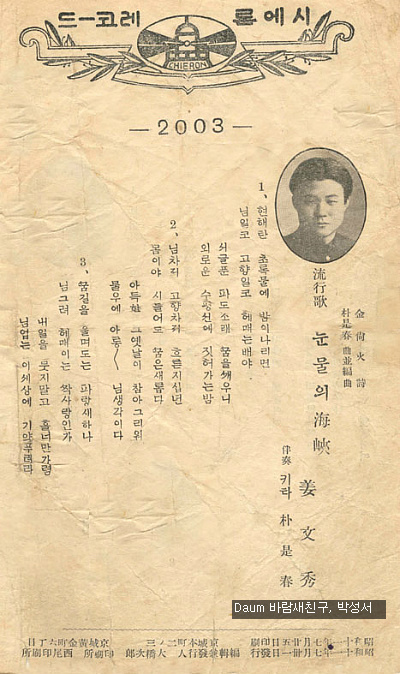 시에론 레코-드
CHIERON
—2003—
金尙火 詩
朴是春 曲並編曲
流行歌 눈물의 海峽 姜文秀
伴奏 키타 朴是春
1、현해탄 초록물에 밤이나리면
님일코 고향일코 헤매는배야
서글푼 파도소래 꿈을깨우니
외로운 수평선에 짓허가는밤
2、님차저 고향차저 흐른지십년
몸이야 시들어도 꿈은새롭다
아득한 그옛날이 참아그리워
물우에 아롱〱 님생각이다
3、꿈길을 울며도는 파랑새하나
님그려 헤매이는 짝사랑인가
내일을 뭇지말고 흘너만가렴
님업는 이세상에 기약푸러라
Daum 바람새친구, 박성서
昭和十一年七月廿五日印刷
昭和十一年七月卅日發行
京城本町二ノ三
編輯兼發行人 大橋次郎
京城黃金町六丁目
印刷所 西尾印刷所